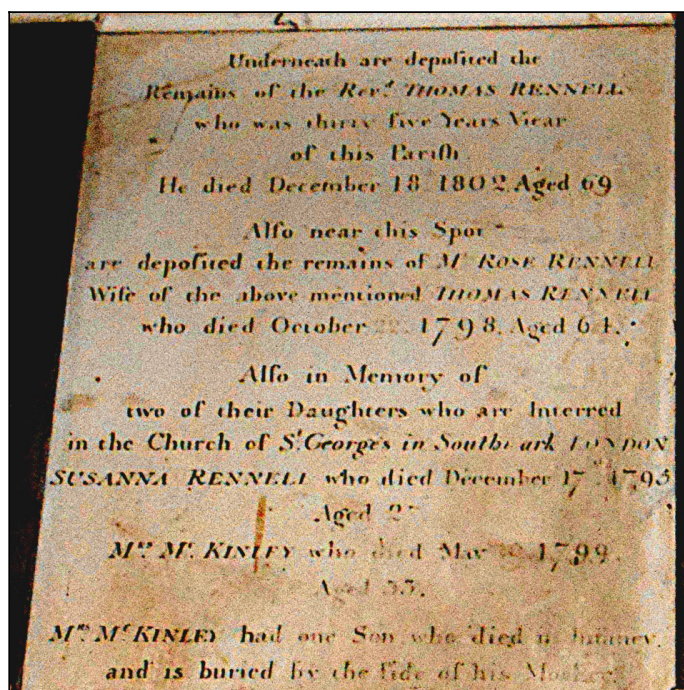 Underneath are depoſited the
Remains of the Revd. THOMAS RENNELL
who was thirty five Years Vicar
of this Pariſh.
He died December 18. 1802. Aged 69
Alſo near this Spot
are depoſited the remains of Mrs ROSE RENNELL
Wife of the above mentioned THOMAS RENNELL
who died October 1798. Aged 64.
Alſo in Memory of
two of their Daughters who are Interred
in the Church of St. George's in Southwark LONDON
SUSANNA RENNELL who died December 17th. 1795
Aged
Mrs. Mc. KINLEY who died May 1799.
Aged 33.
Mrs. McKINLEY had one Son who died in Infancy,
and is buried by the ſide of his Mother